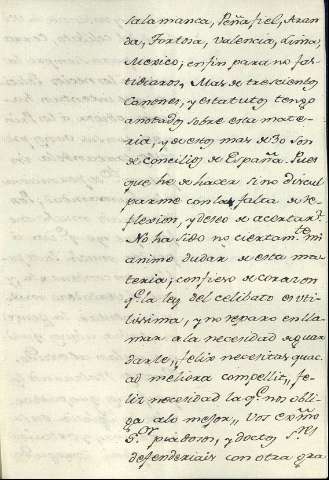 Salamanca, Peñafiel, Aran
da, Tortosa, Valencia, Lima,
Mexico, en fin para no fas
tidiaros, Mas de trescientos
Canones, y estatutos tengo
anotados sobre esta mate
ria, y de estos mas de 30 son
de concilios de España. Pues
que he de hacer sino discul
parme con la falta de re
flexion, y deseo de acertar?
No ha sido no ciertam.te mi
animo dudar de esta ma
teria; confieso de corazon
q.e la ley del celibato es uti
lissima, y no reparo en lla
mar a la necesidad de guar
darle,, felix necesitas quae
ad meliora compellit,, fe
liz necesidad la q.e nos obli
ga a lo mejor,, Vos exmo
S.or piadosos, y doctos S.res
defenderiais con otra gra